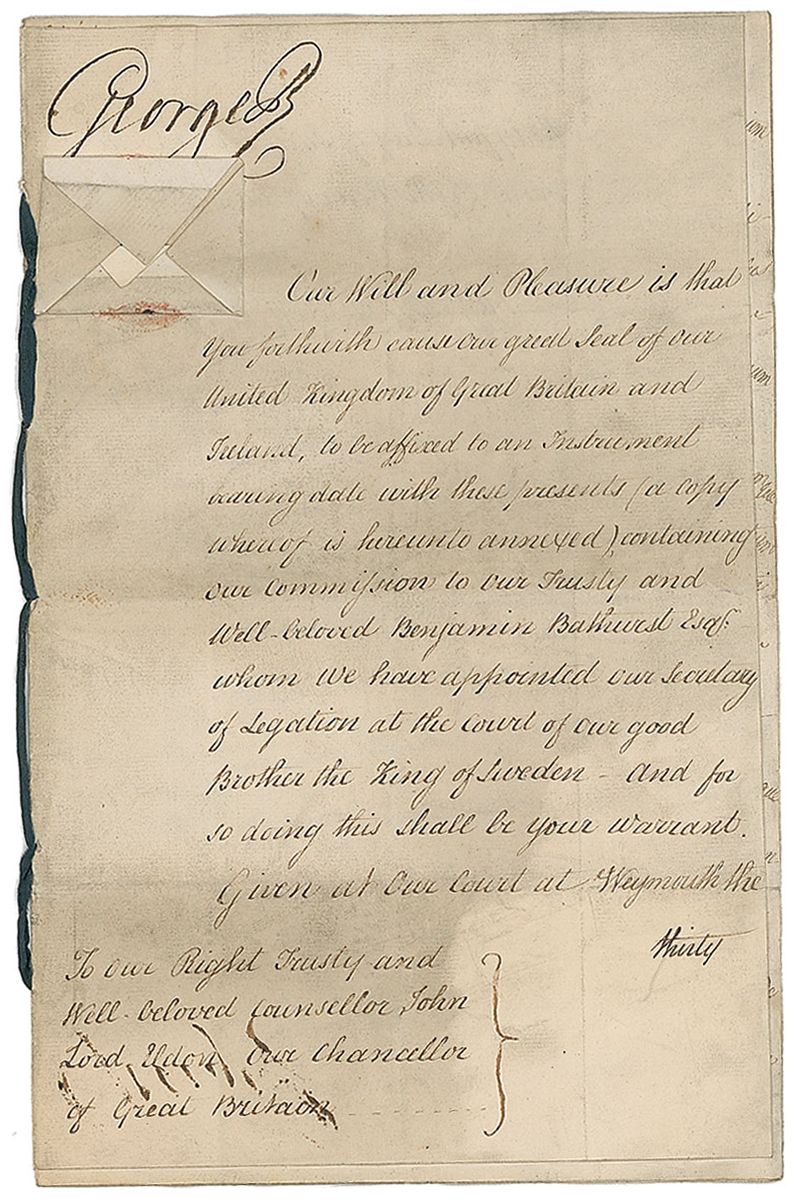 George R
Our Will and Pleasure is that
You forthwith cause our great Seal of our
United Kingdom of Great Britain and
Ireland, to be affixed to an Instrument
bearing date with these presents (a copy
whereof is hereunto annexed), containing
our Commission to our Trusty and
Well-beloved Benjamin Bathurst Esqr.
whom We have appointed our Secretary
of Legation at the Court of our good
Brother the King of Sweden - and for
so doing this shall be your Warrant.
Given at Our Court at Weymouth the
thirty
To our Right Trusty and
Well-beloved Counsellor John
Lord Eldon Our Chancellor
of Great Britain